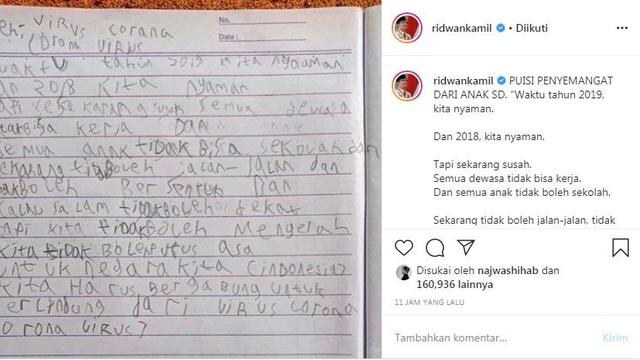 eh: VIRUS corona
No.
(corona VIRUS
Date :
tahun 2019 kita nyaman
an 2018 Kita nyaman
api sekarang susah semua dewasa
tidakbisa kerja DAN
semua anak tidak BISA sekolah dan
sekarang tidak boleh jalan-jalan dan
tidak boleh Bersentuh Dan
Kalau salam tidak boleh dekat
api kita tidak boleh Mengelah
Kita tidak Boleh Putus asa
untuk negara kita (indonesia)
Kita Harus Bergabung untuk
erlindung dari VIRUS corona
corona VIRUS?
ridwankamil • Diikuti
ridwankamil PUISI PENYEMANGAT
DARI ANAK SD. "Waktu tahun 2019,
kita nyaman.
Dan 2018, kita nyaman.
Tapi sekarang susah.
Semua dewasa tidak bisa kerja.
Dan semua anak tidak boleh sekolah.
Sekarang tidak boleh jalan-jalan, tidak
Disukai oleh najwashihab dan
160,936 lainnya
11 JAM YANG LALU
Tambahkan komentar...
Kirim